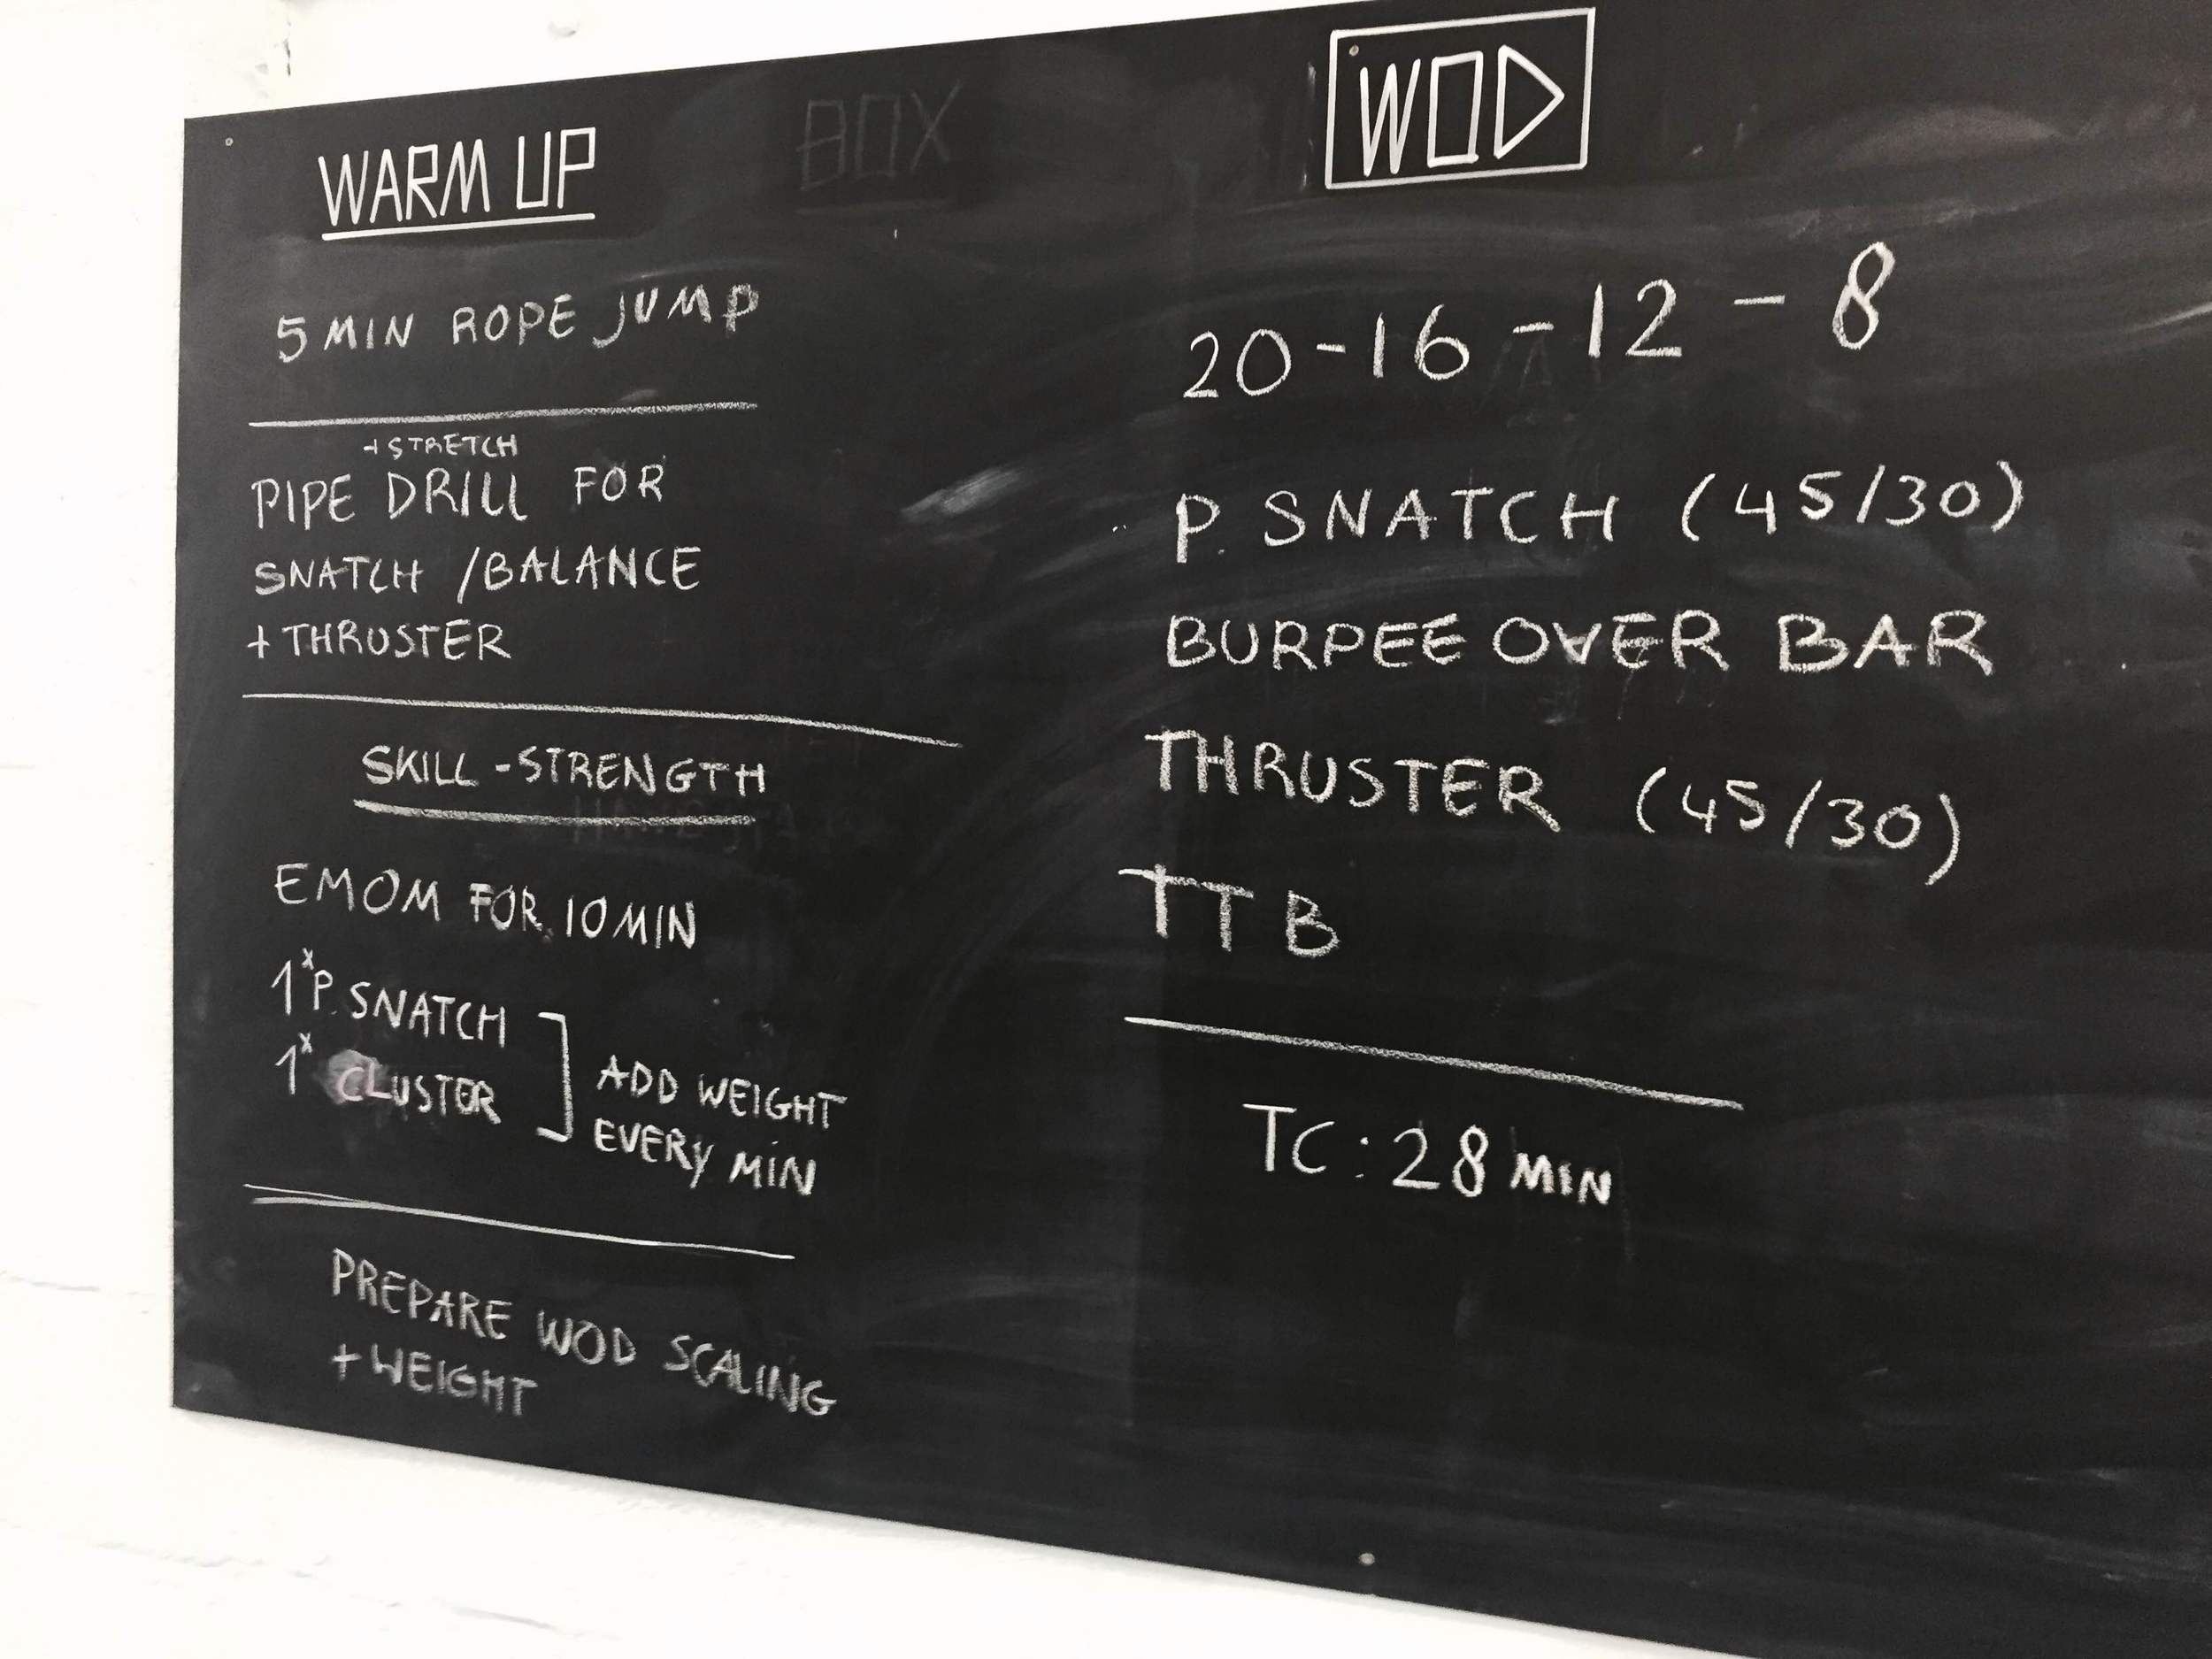 WARM UP
5 MIN ROPE JUMP
+ STRETCH
PIPE DRILL FOR
SNATCH / BALANCE
+ THRUSTER
SKILL - STRENGTH
EMOM FOR 10 MIN
1x P. SNATCH
1x CLUSTER
ADD WEIGHT
EVERY MIN
PREPARE WOD SCALING
+ WEIGHT
BOX
WOD
20 - 16 - 12 - 8
P. SNATCH (45/30)
BURPEE OVER BAR
THRUSTER (45/30)
TTB
TC : 28 MIN